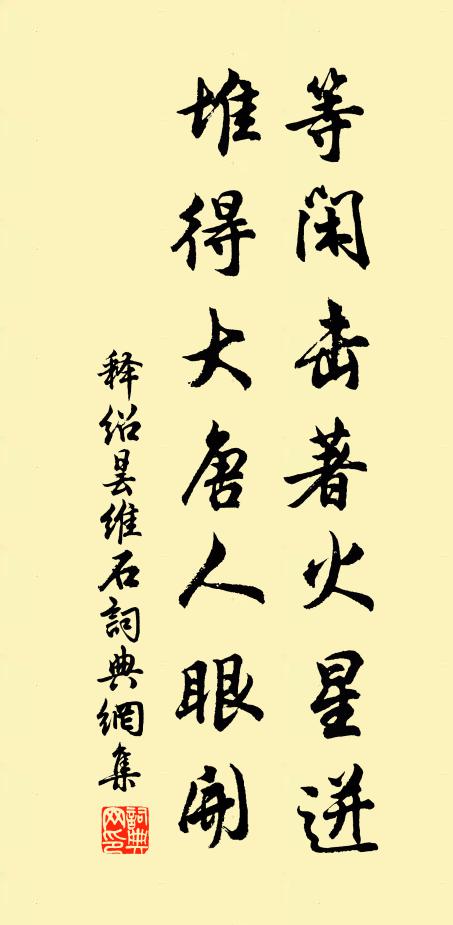 等闲击著火星迸
堆得大唐人眼開
释绍昙维石詞典網集
詞典网印